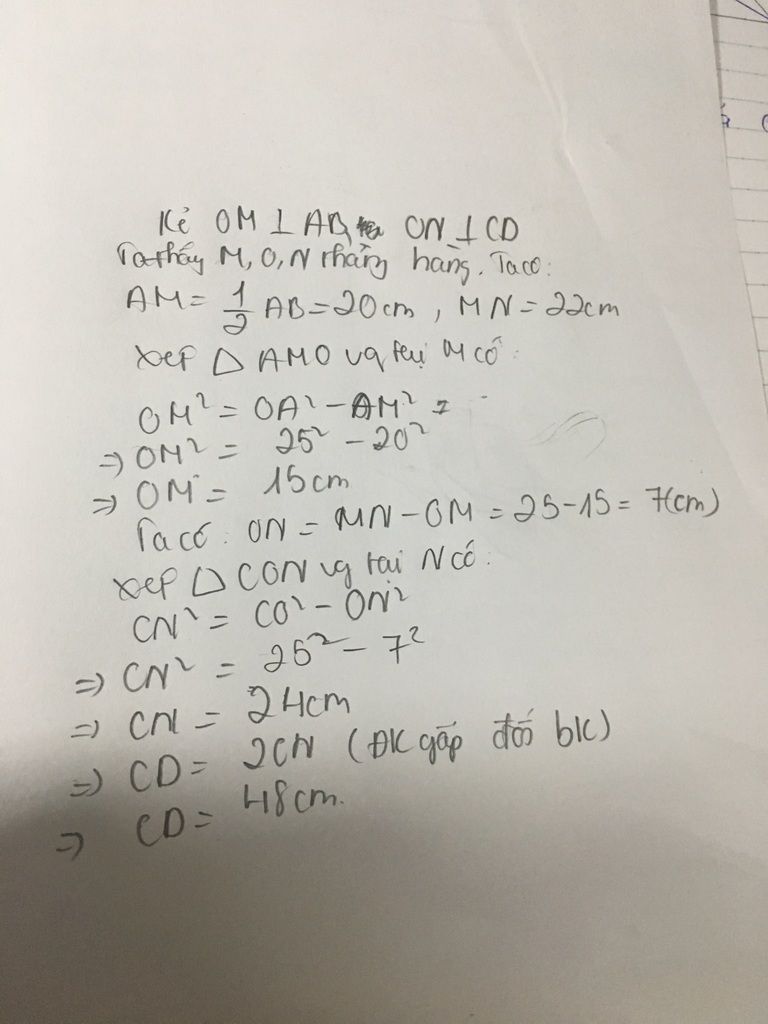 Kẻ OM ⊥ AB, ON ⊥ CD
Ta thấy M, O, N thẳng hàng. Ta có:
AM = 1/2 AB = 20cm, MN = 22cm
Xét △ AMO vg tại M có:
OM² = OA² - AM² =
=> OM² = 25² - 20²
=> OM = 15cm
Ta có: ON = MN - OM = 25 - 15 = 7(cm)
Xét △ CON vg tại N có:
CN² = CO² - ON²
=> CN² = 25² - 7²
=> CN = 24cm
=> CD = 2CN (ĐK gấp đôi bk)
=> CD = 48cm.